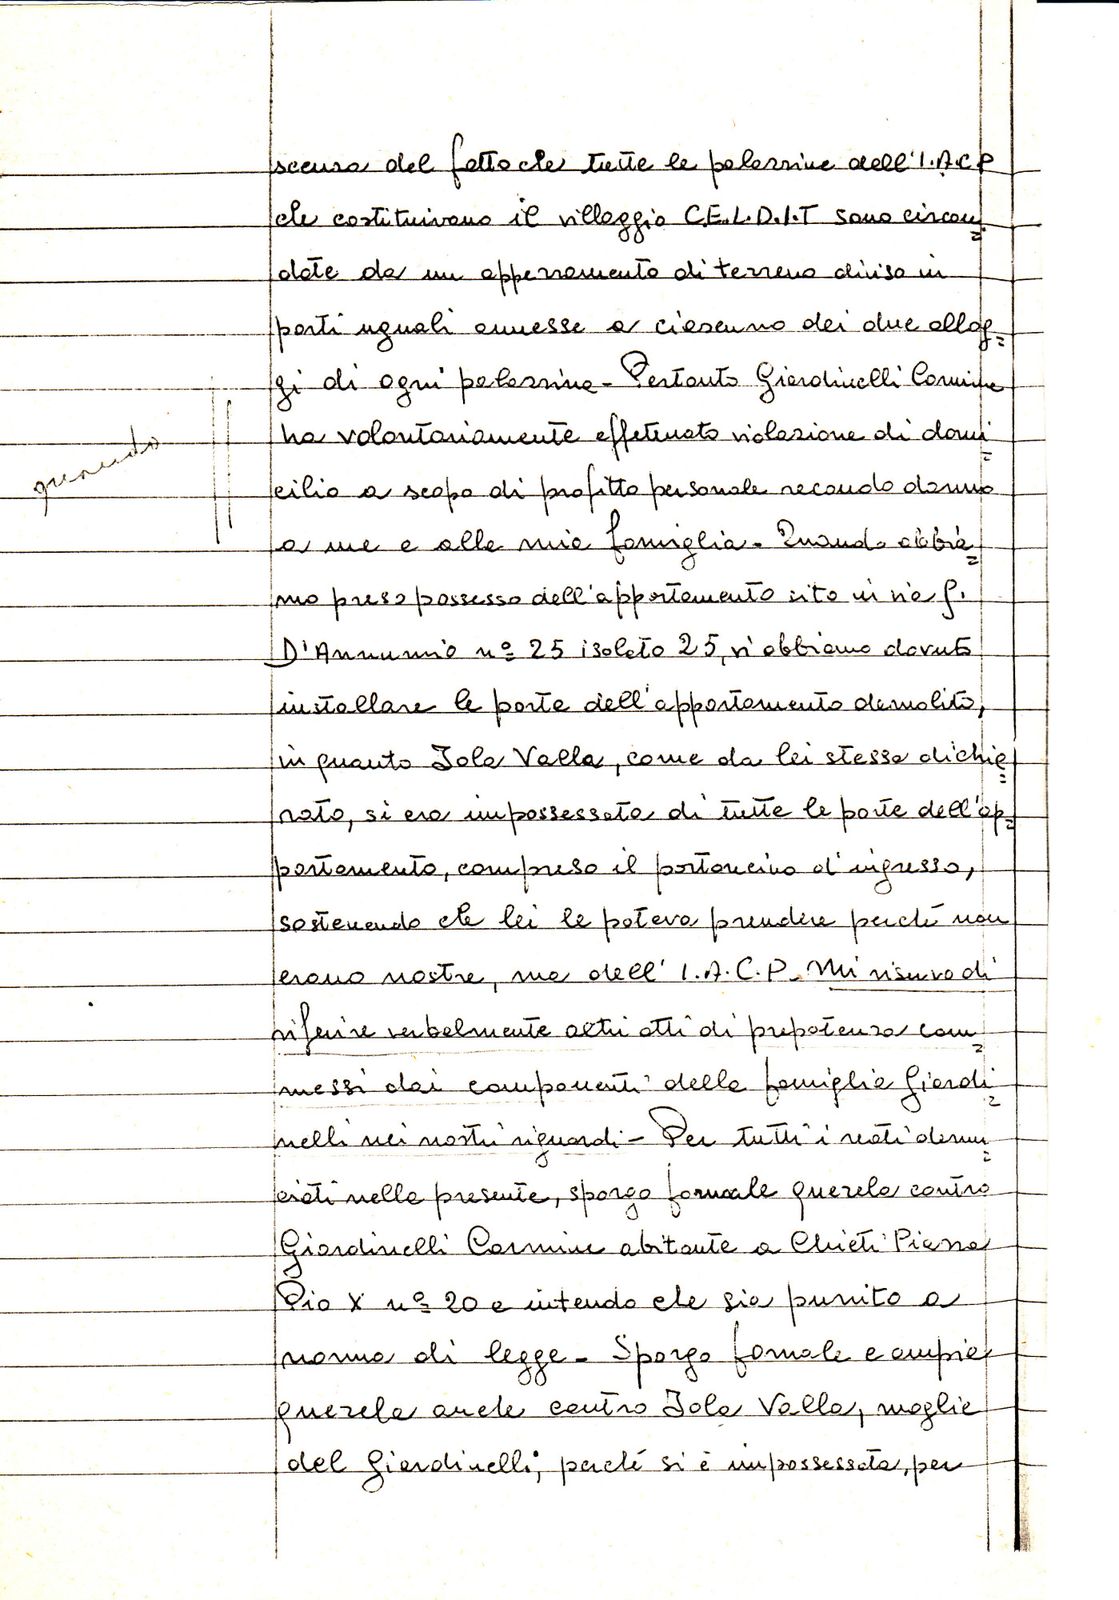 scenza del fatto che tutte le palazzine dell'I.A.C.P
che costituivano il villaggio C.E.L.D.I.T sono circon=
date da un appezzamento di terreno diviso in
parti uguali annesse a ciascuno dei due allog=
gi di ogni palazzina - Pertanto Giardinelli Carmine
ha volontariamente effettuato violazione di domi=
quando
cilio a scopo di profitto personale recando danno
a me e alla mia famiglia - Quando abbia=
mo preso possesso dell'appartamento sito in via G.
D'Annunzio nº 25 isolato 25, vi abbiamo dovuto
installare le porte dell'appartamento demolito,
in quanto Jola Valla, come da lei stessa dichia=
rato, si era impossessata di tutte le porte dell'ap=
partamento, compreso il portoncino d'ingresso,
sostenendo che lei le poteva prendere perché non
erano nostre, ma dell'I.A.C.P - Mi riservo di
riferire verbalmente altri atti di prepotenza com=
messi dai componenti della famiglia Giardi=
nelli nei nostri riguardi - Per tutti i reati denun=
ciati nella presente, sporgo formale querela contro
Giardinelli Carmine abitante a Chieti Piazza
Pio X nº 20 e intendo che sia punito a
norma di legge - Sporgo formale e ampia
querela anche contro Jola Valla, moglie
del Giardinelli, perché si è impossessata, per